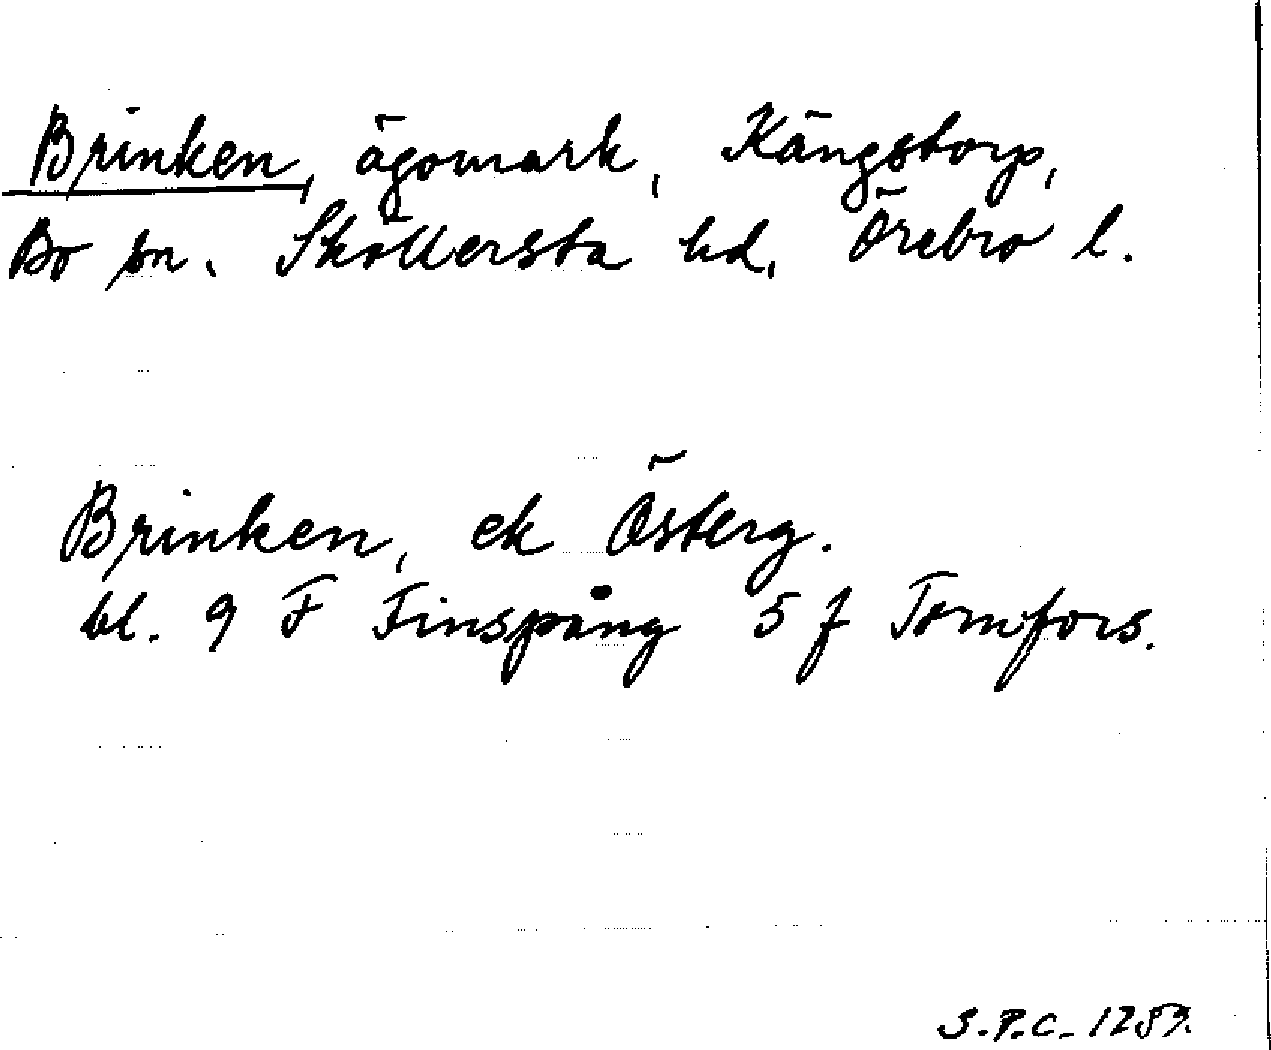 Brinken, ägomark, Kängstorp,
Bo sn. Sköllersta hd, Örebro l.
Brinken, ek Österg.
bl. 9 F Finspång 5 f Tomfors.
S.P.C. 1283.